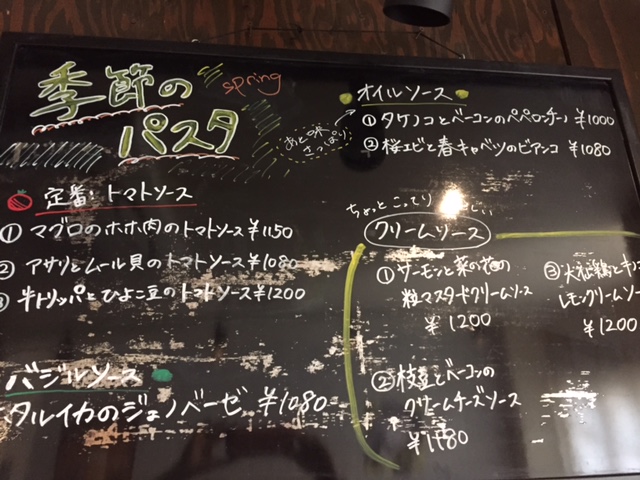 季節の
spring
パスタ
定番:トマトソース
① マグロのホホ肉のトマトソース ¥1150
② アサリとムール貝のトマトソース ¥1080
③ 牛トリッパとひよこ豆のトマトソース ¥1200
バジルソース
タルイカのジェノベーゼ ¥1080
オイルソース
あと味
さっぱり
① タケノコとベーコンのペペロンチーノ ¥1000
② 桜エビと春キャベツのビアンコ ¥1080
ちょっとこってり
クリームソース
① サーモンと菜の花の
粒マスタードクリームソース
¥1200
② 枝豆とベーコンの
クリームチーズソース
¥1180
③
レモンクリームソー
¥1200